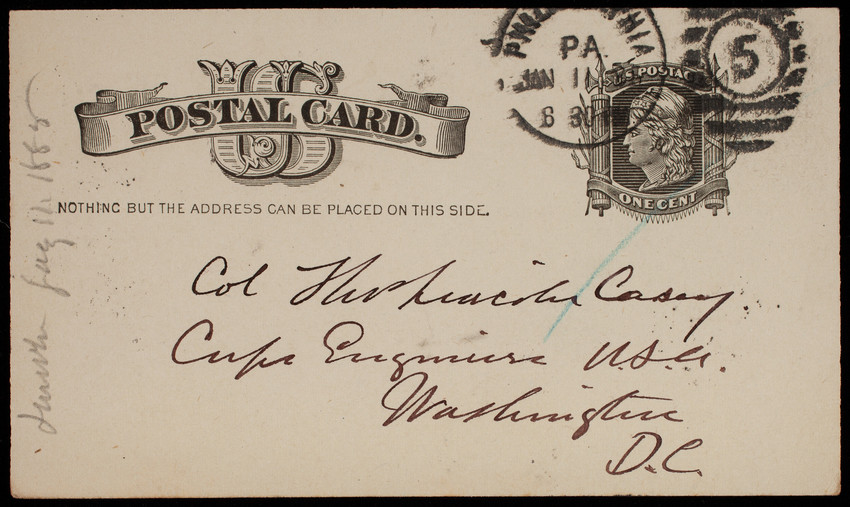 US
POSTAL CARD.
NOTHING BUT THE ADDRESS CAN BE PLACED ON THIS SIDE.
PA
JAN 11
6 30
5
U.S. POSTAGE
ONE CENT
Col Thos Lincoln Casey.
Corps Engineers U.S.A.
Washington
D.C.
Jany 11. 1885